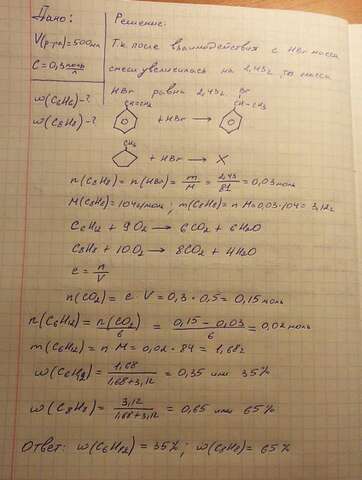 Дано:
Решение:
V(р-ра)=500мл
C=0,3 моль/л
w(C6H6)-?
w(C8H8)-?
Т.к. после взаимодействия с HBr масса
смеси увеличилась на 2,43г, то масса
HBr равна 2,43г.
CH=CH2 + HBr → Br CH-CH3
CH3 + HBr → X
n(C8H8) = n(HBr) = m/M = 2,43/81 = 0,03 моль
M(C8H8)=104г/моль; m(C8H8)=n·M=0,03·104=3,12г
C6H12 + 9O2 → 6CO2 + 6H2O
C8H8 + 10O2 → 8CO2 + 4H2O
c = n/V
n(CO2) = c·V = 0,3·0,5 = 0,15 моль
n(C6H12) = n(CO2)/6 = 0,15-0,03/6 = 0,02 моль
m(C6H12) = n·M = 0,02·84 = 1,68г
w(C6H12) = 1,68/1,68+3,12 = 0,35 или 35%
w(C8H8) = 3,12/1,68+3,12 = 0,65 или 65%
Ответ: w(C6H12) = 35%; w(C8H8) = 65%